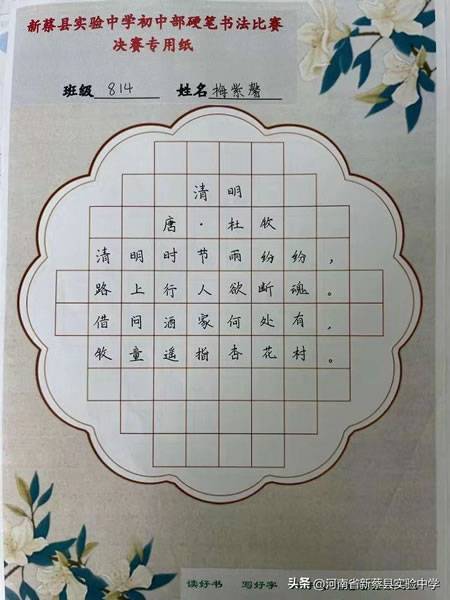 新蔡县实验中学初中部硬笔书法比赛
决赛专用纸
班级 814 姓名 梅紫馨
清明
唐·杜牧
清明时节雨纷纷，
路上行人欲断魂。
借问酒家何处有，
牧童遥指杏花村。
读好书 写好字
头条 @河南省新蔡县实验中学